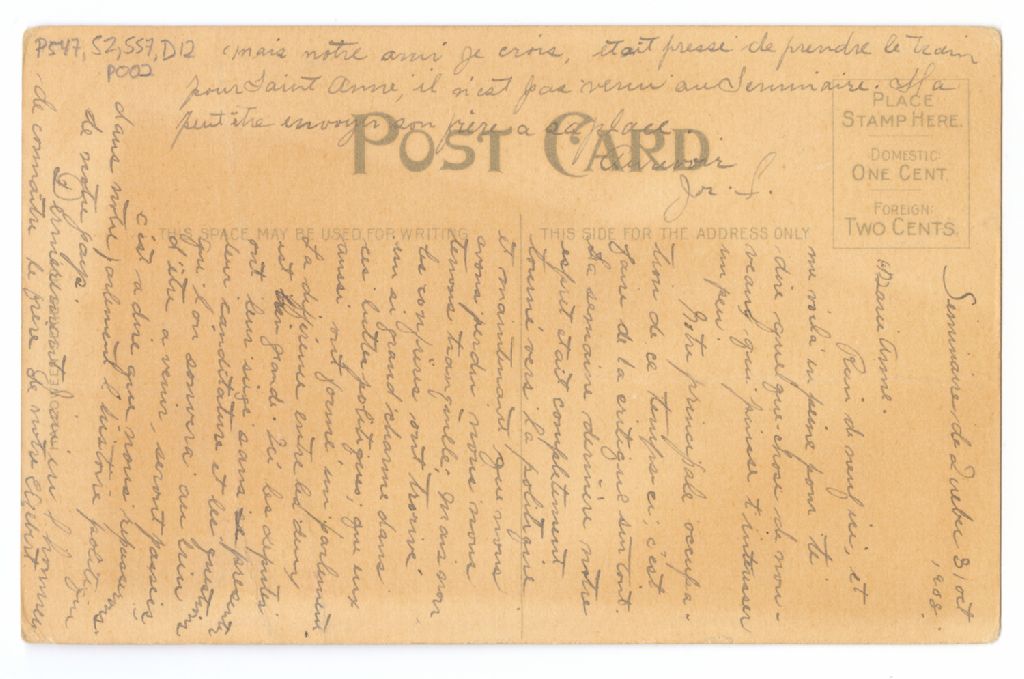 P547, S2, SS7, D12
P002
POST CARD
PLACE
STAMP HERE.
DOMESTIC:
ONE CENT.
FOREIGN:
TWO CENTS.
THIS SPACE MAY BE USED FOR WRITING
THIS SIDE FOR THE ADDRESS ONLY
Séminaire de Québec 31 oct
1908.
Marie Anne.
Rien de neuf ici, et
me voilà en peine pour te
dire quelque chose de nou-
veau qui puisse t'intéresser
un peu.
Notre principale occupa-
tion de ce temps-ci; c'est
faire de la critique sur tout.
La semaine dernière notre
esprit était complètement
tourné vers la politique
et maintenant que nous
avons perdu nous nous
tenons tranquille; mais non
les confrères ont trouvé
un si grand charme dans
ces luttes politiques, que eux
aussi ont formé un parlement.
La différence entre les deux
est bien grand. Ici les députés
ont leur siège sans présenter
leur canditature et les questions
que l'on soulèvera au
d'itu a venir, seront passées
c'est à dire que nous repasserons
dans notre parlement l'histoire politique
de notre pays.
Dernièrement j'ai eu l'honneur
de connaître le frère de notre
mais notre ami je crois, était pressé de prendre le train
pour Saint Anne, il n'est pas venu au Séminaire. Il a
peut être envoyer son frère a sa place.
Aurevoir
Jos. S.